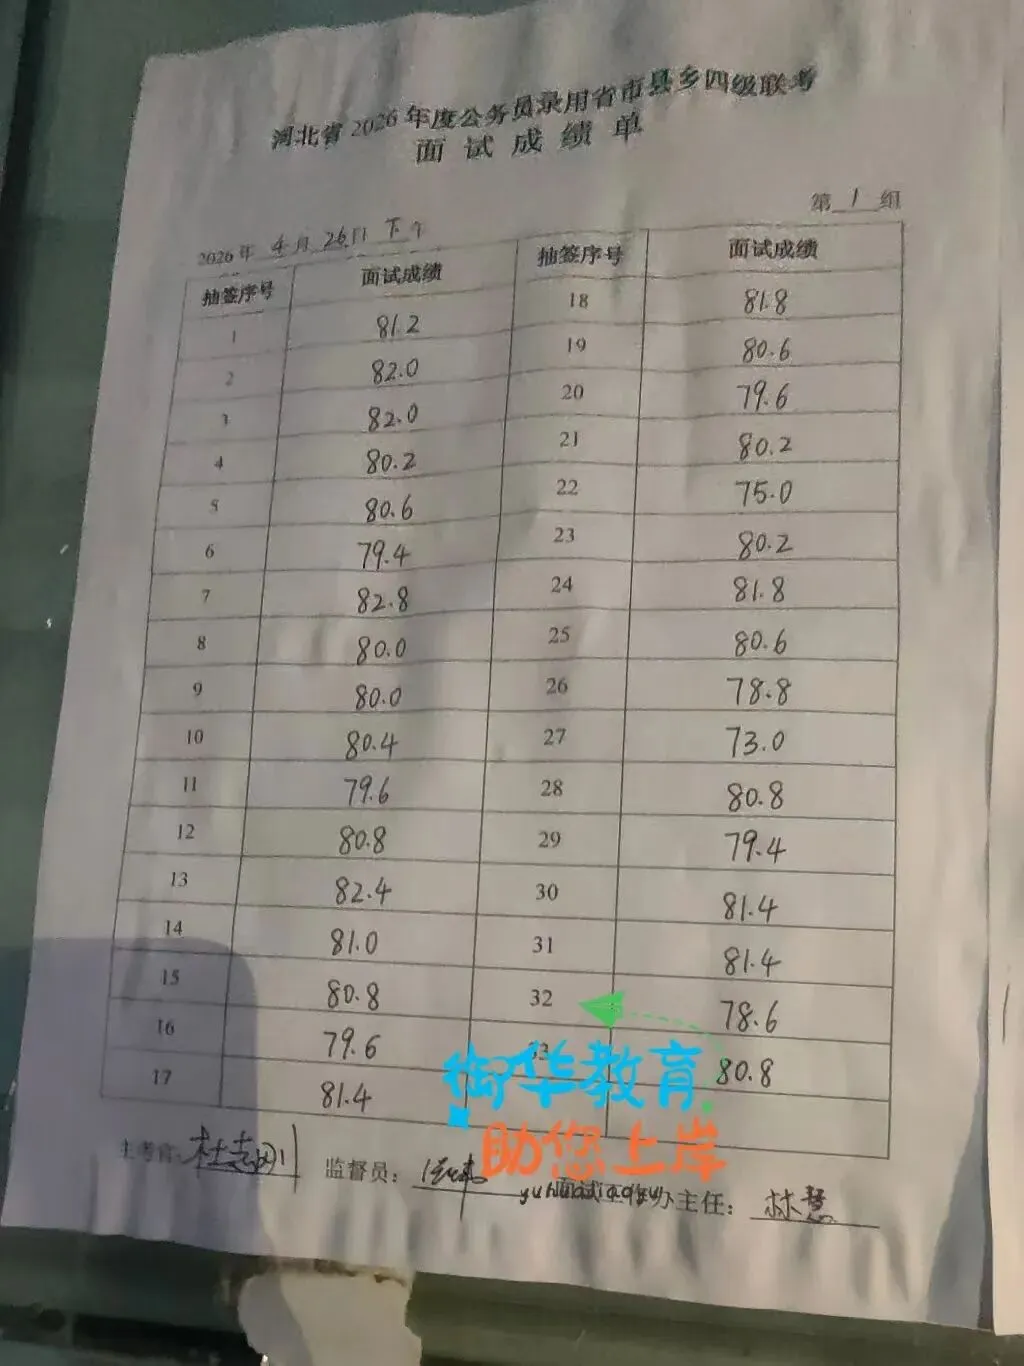 河北省 2026 年度公务员录用省市县乡四级联考
面 试 成 绩 单
第 1 组
2026 年 4 月 26 日 下 午
抽签序号 面试成绩 抽签序号 面试成绩
1 81.2 18 81.8
2 82.0 19 80.6
3 82.0 20 79.6
4 80.2 21 80.2
5 80.6 22 75.0
6 79.4 23 80.2
7 82.8 24 81.8
8 80.0 25 80.6
9 80.0 26 78.8
10 80.4 27 73.0
11 79.6 28 80.8
12 80.8 29 79.4
13 82.4 30 81.4
14 81.0 31 81.4
15 80.8 32 78.6
16 79.6 33 80.8
17 81.4
御华教育
助您上岸
主考官: 监督员: 面试工作办主任: 林慧